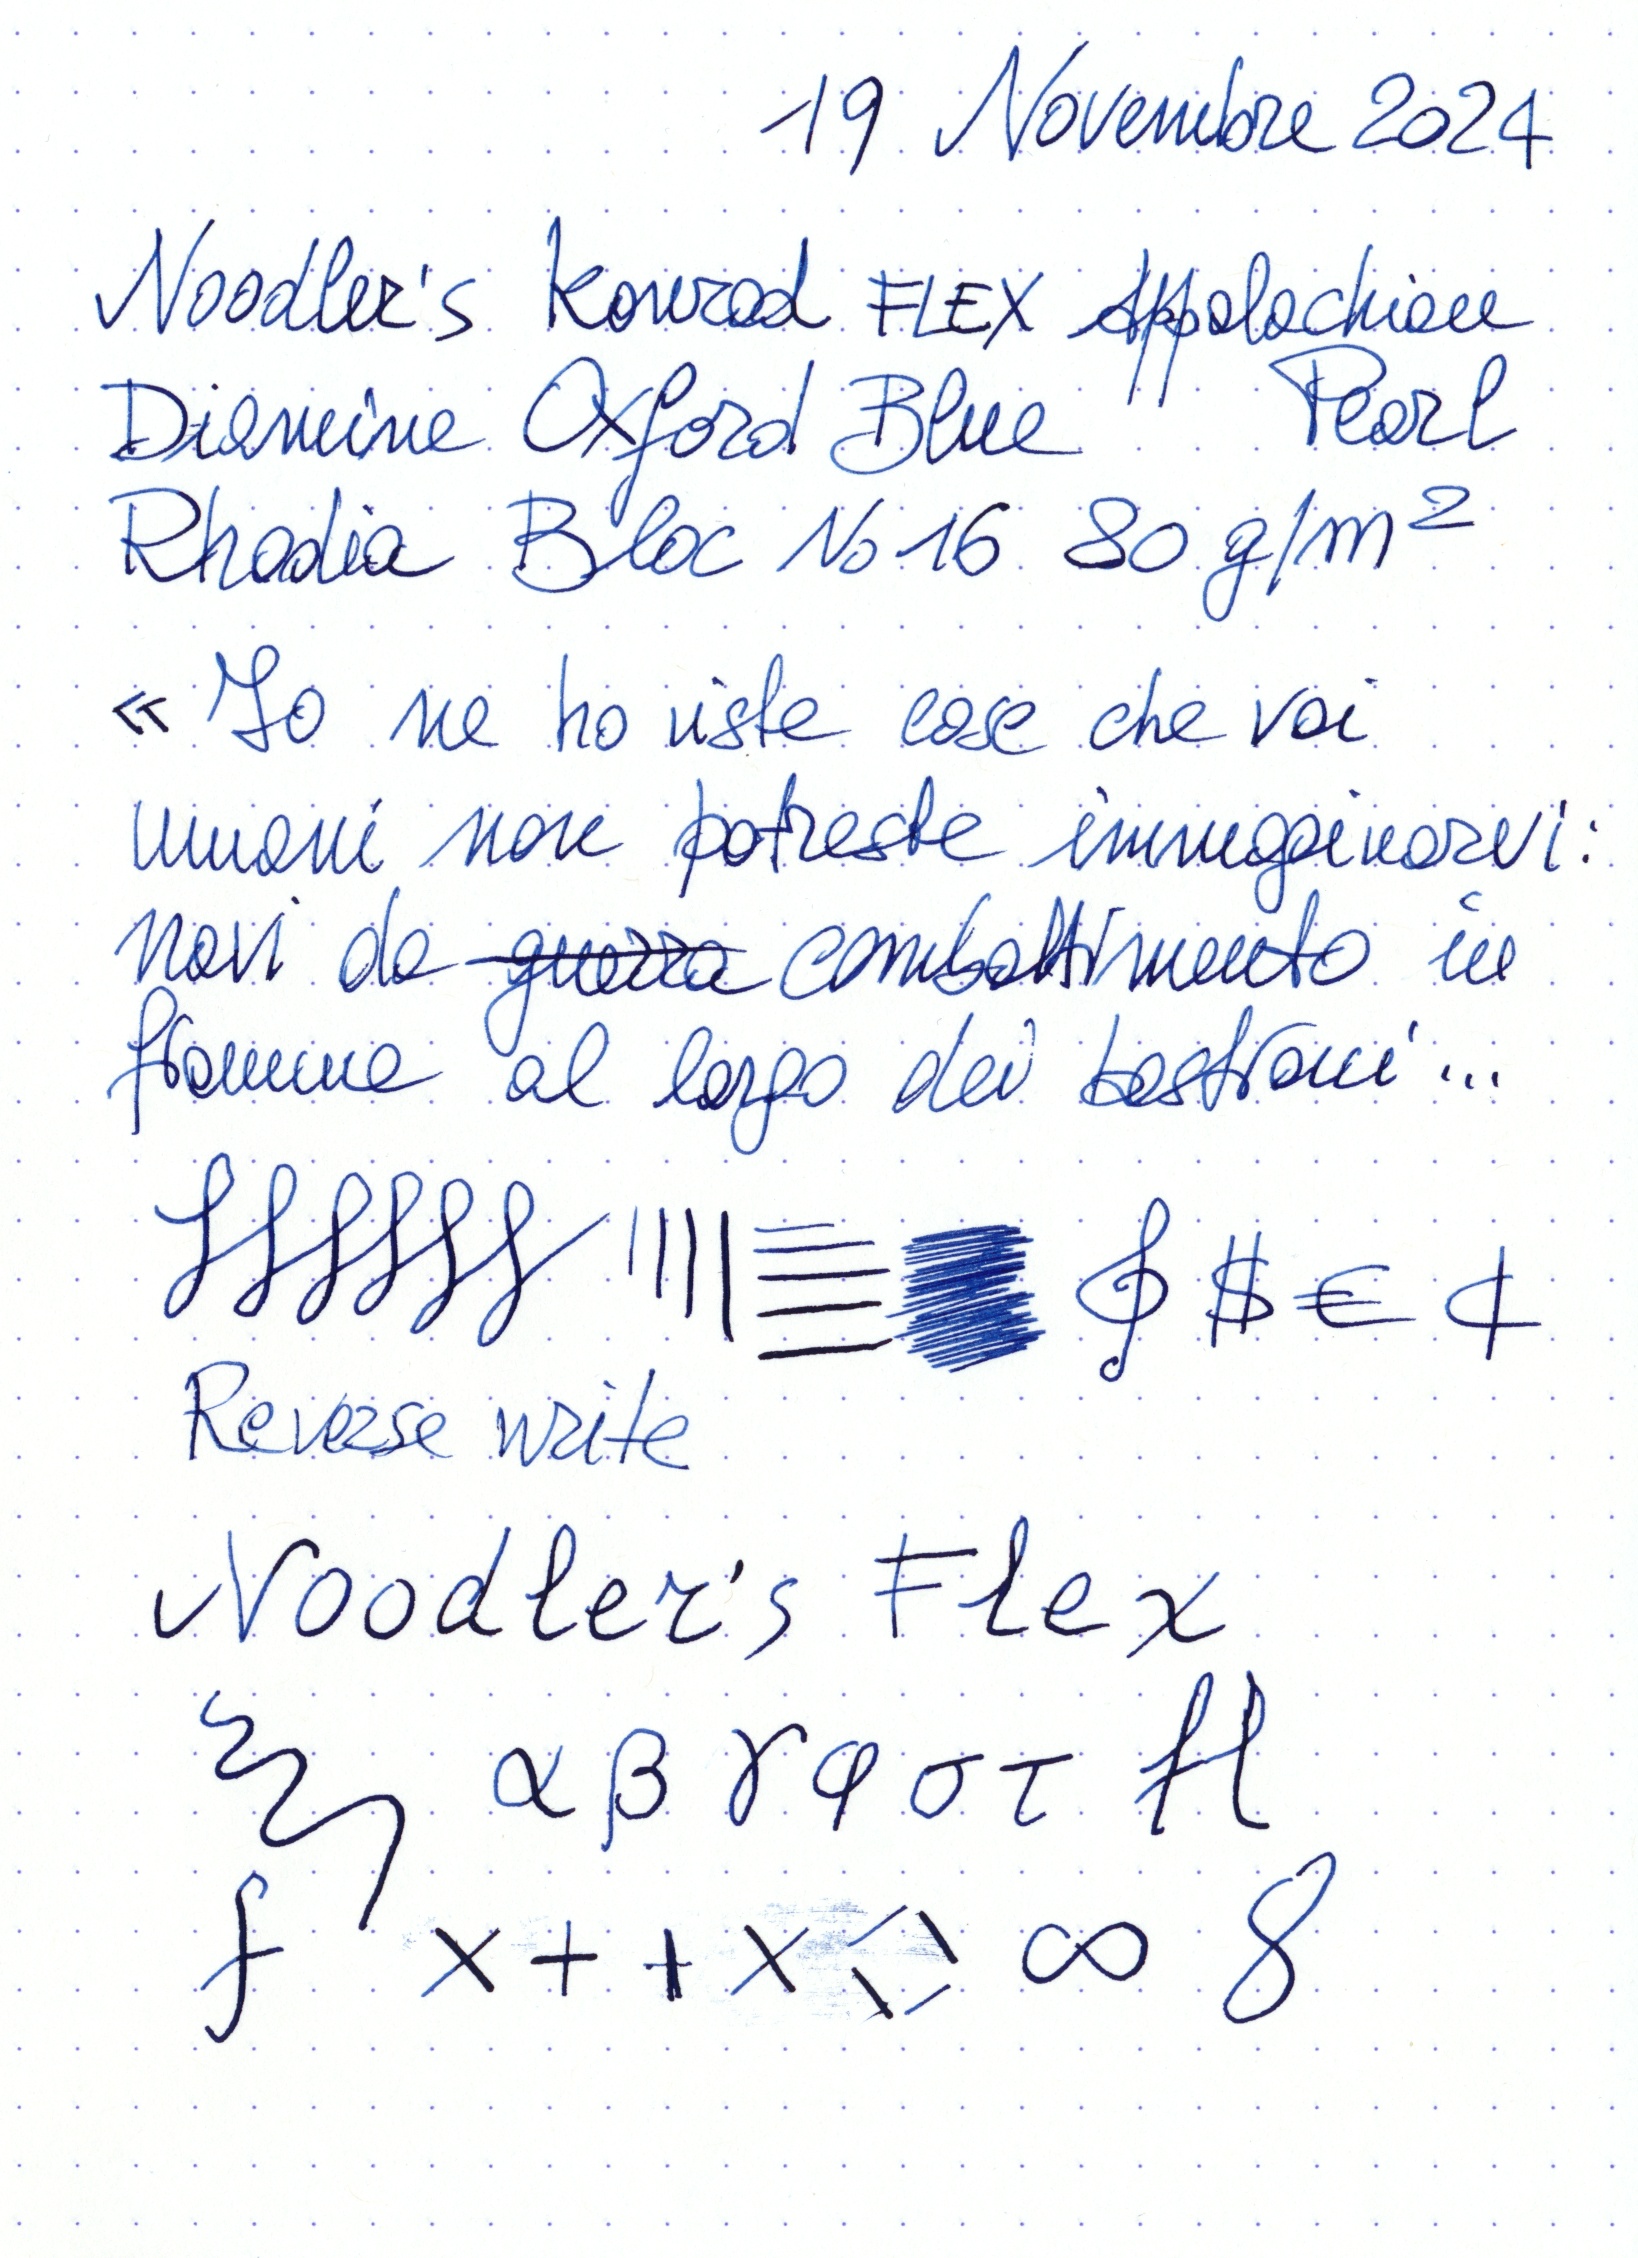 19 Novembre 2024
Noodler's Konrad FLEX Appalachian
Diamine Oxford Blue Pearl
Rhodia Bloc No 16 80 g/m²
« Io ne ho viste cose che voi
umani non potreste immaginarvi:
navi da ~~guerra~~ combattimento in
fiamme al largo dei bastioni...
$ € ¢
Reverse write
Noodler's Flex
α β γ φ σ τ fl
f x + + x ∞ 8